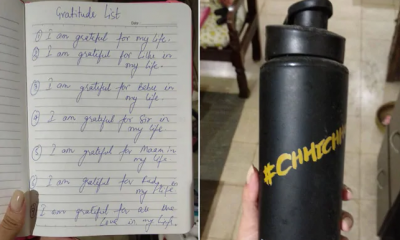 Gratitude List
Date
① I am grateful for my life.
② I am grateful for Liku in
my life.
③ I am grateful for Bebu in
my life
④ I am grateful for Sir in
my life
I am grateful for Maam in
my life
I am grateful for
my life
I am grateful for all the
Love in my life.
#CHHICHH